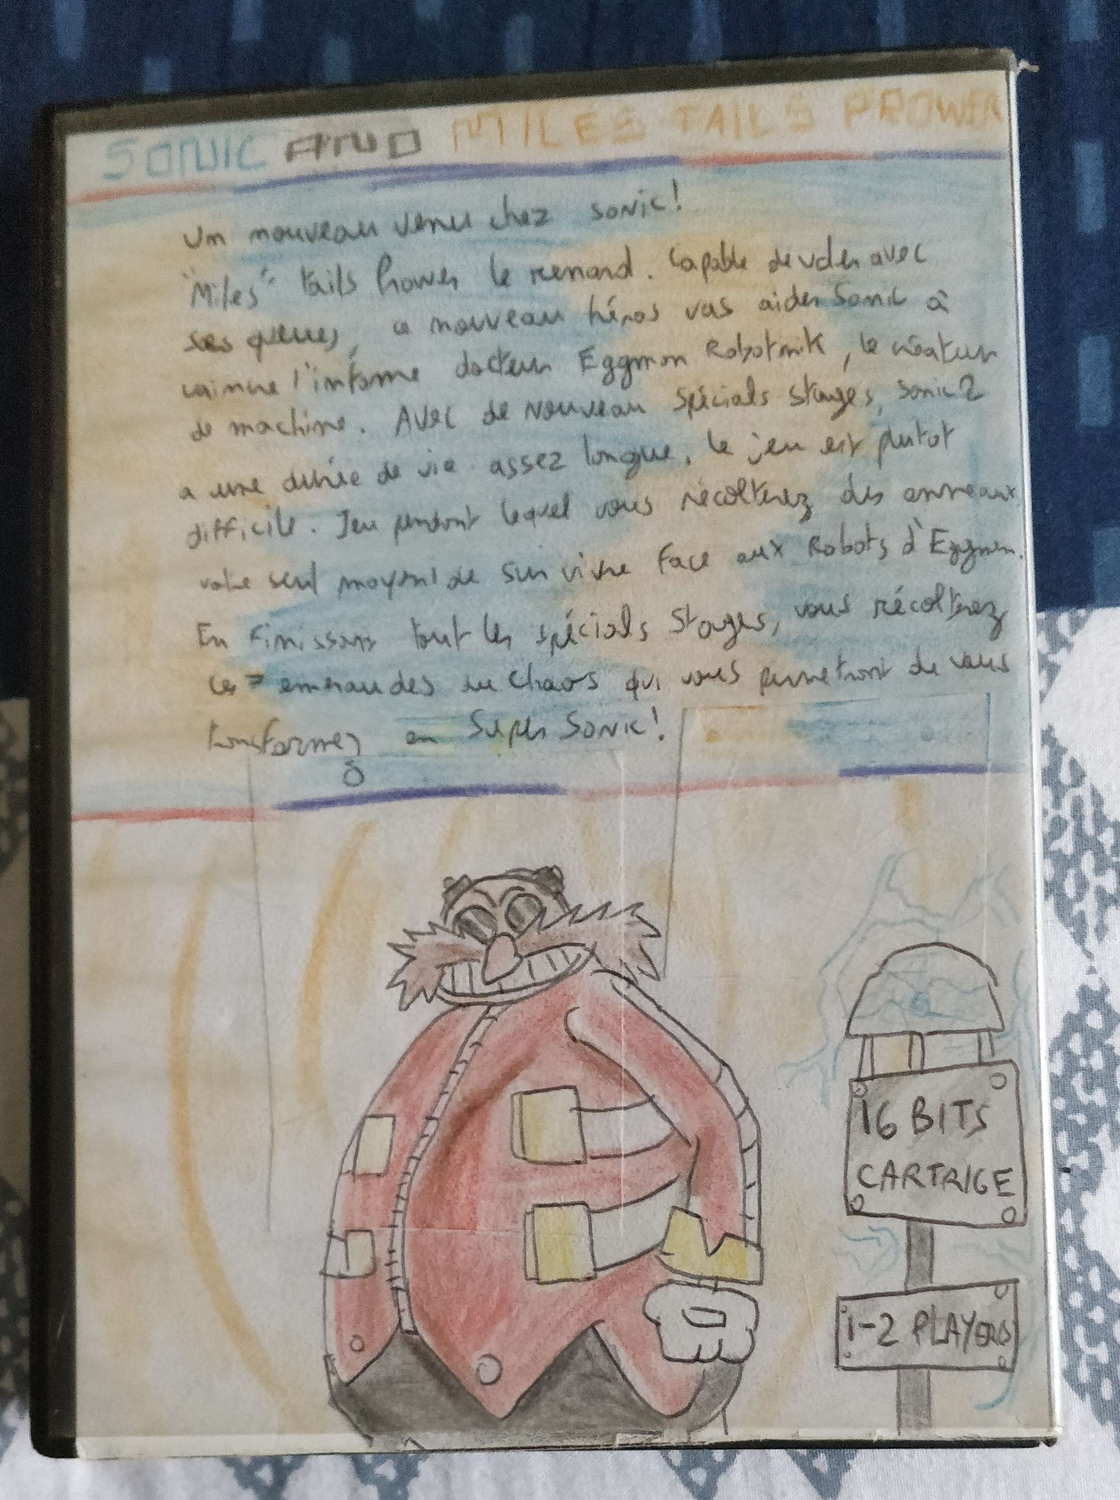 SONIC AND MILES TAILS PROWER
Un nouveau venu chez sonic!
"Miles" tails Prower le renard. Capable de voler avec
ses queues, ce nouveau héros vas aider Sonic à
vaincre l'infame docteur Eggman Robotnik, le créateur
de machine. Avec de Nouveau Spécials Stages, Sonic 2
a une durée de vie assez longue, le jeu est plutot
difficile. Jeu pendant lequel vous récolterez des anneaux
votre seul moyen de survivre face aux Robots d'Eggman.
En finissant tout les spécials Stages, vous récolterez
les 7 emeraudes du Chaos qui vous permetront de vous
transformez en Super Sonic!
16 BITS
CARTRIGE
1-2 PLAYERS